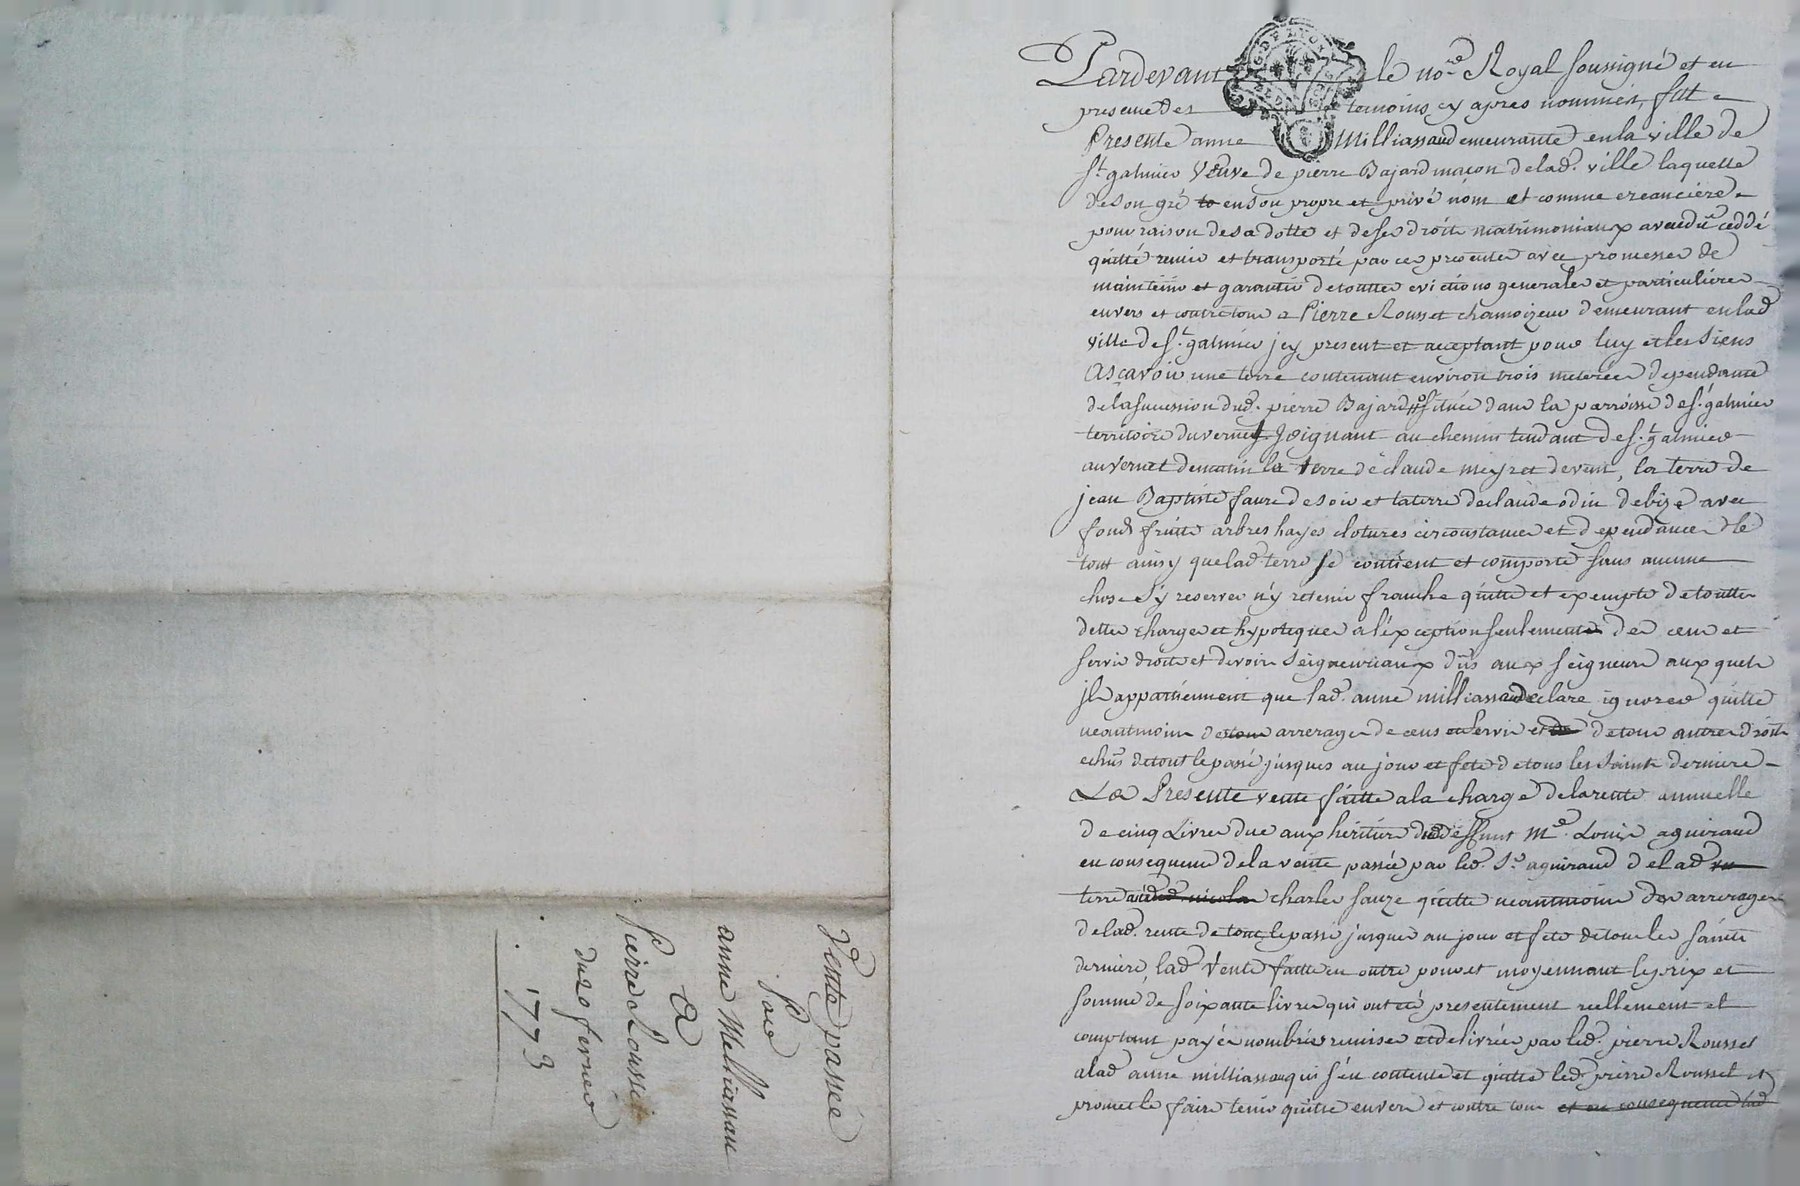 Vente passée
par
anne Milliassau
A
Pierre Rousset
du 20 fevrier
1773
Pardevant le no.re Royal soussigné et en
presence des temoins cy apres nommés, fut
Presente anne Milliassau demeurante en la ville de
St galmier Veuve de pierre Bajard maçon de lad. ville laquelle
de son gré en son propre et privé nom et comme creanciere
pour raison de sa dotte et de ses droits matrimoniaux a vendu ceddé
quitté remis et transporté par ces presentes avec promesses de
maintenir et garantir de touttes evictions generales et particulieres
envers et contre tous a Pierre Rousset chamoizeur demeurant en lad
ville de St galmier jcy present et acceptant pour luy et les siens
Asçavoir une terre contenant environ trois meterées dependante
de la sucession dud. pierre Bajard située dans la parroisse de St galmier
territoire du vernet Joignant au chemin tendant de St galmier
au vernet de matin la terre de claude meyret de vent, la terre de
jean Baptiste faure de soir et la terre de claude odin de bize avec
fonds fruits arbres hayes clotures circonstances et dependances le
tout ainsy que lad terre se contient et comporte sans aucune
chose s'y reserver n'y retenir franche quitte et exempte de touttes
dettes charges et hypoteques a l'exception seulement des cens et
servis droits et devoirs seigneuriaux dûs aux seigneurs auxquels
jls appartiennent que lad. anne milliassau declare ignorer quitte
neantmoins de tous arrerages de cens et servis et de tous autres droits
echûs de tout le passé jusques au jour et fete de tous les saints derniere
La Presente vente faitte a la charge de la rente annuelle
de cinq Livres due aux heritiers dud deffunt Me. Louis aguiraud
en consequence de la vente passée par led. Sr. aguiraud de lad
terre charles sauze quitte neantmoins des arrerages
de lad. rente de tout le passé jusques au jour et fete de tous les saints
derniere, lad vente faitte en outre pour et moyennant le prix et
somme de soixante livres qui ont eté presentement reellement et
comptant payés nombrés remises et delivrées par led. pierre Rousset
a lad anne milliassau qui s'en contente et quitte led. pierre Rousset et
promet le faire tenir quitte envers et contre tous et en consequence lad